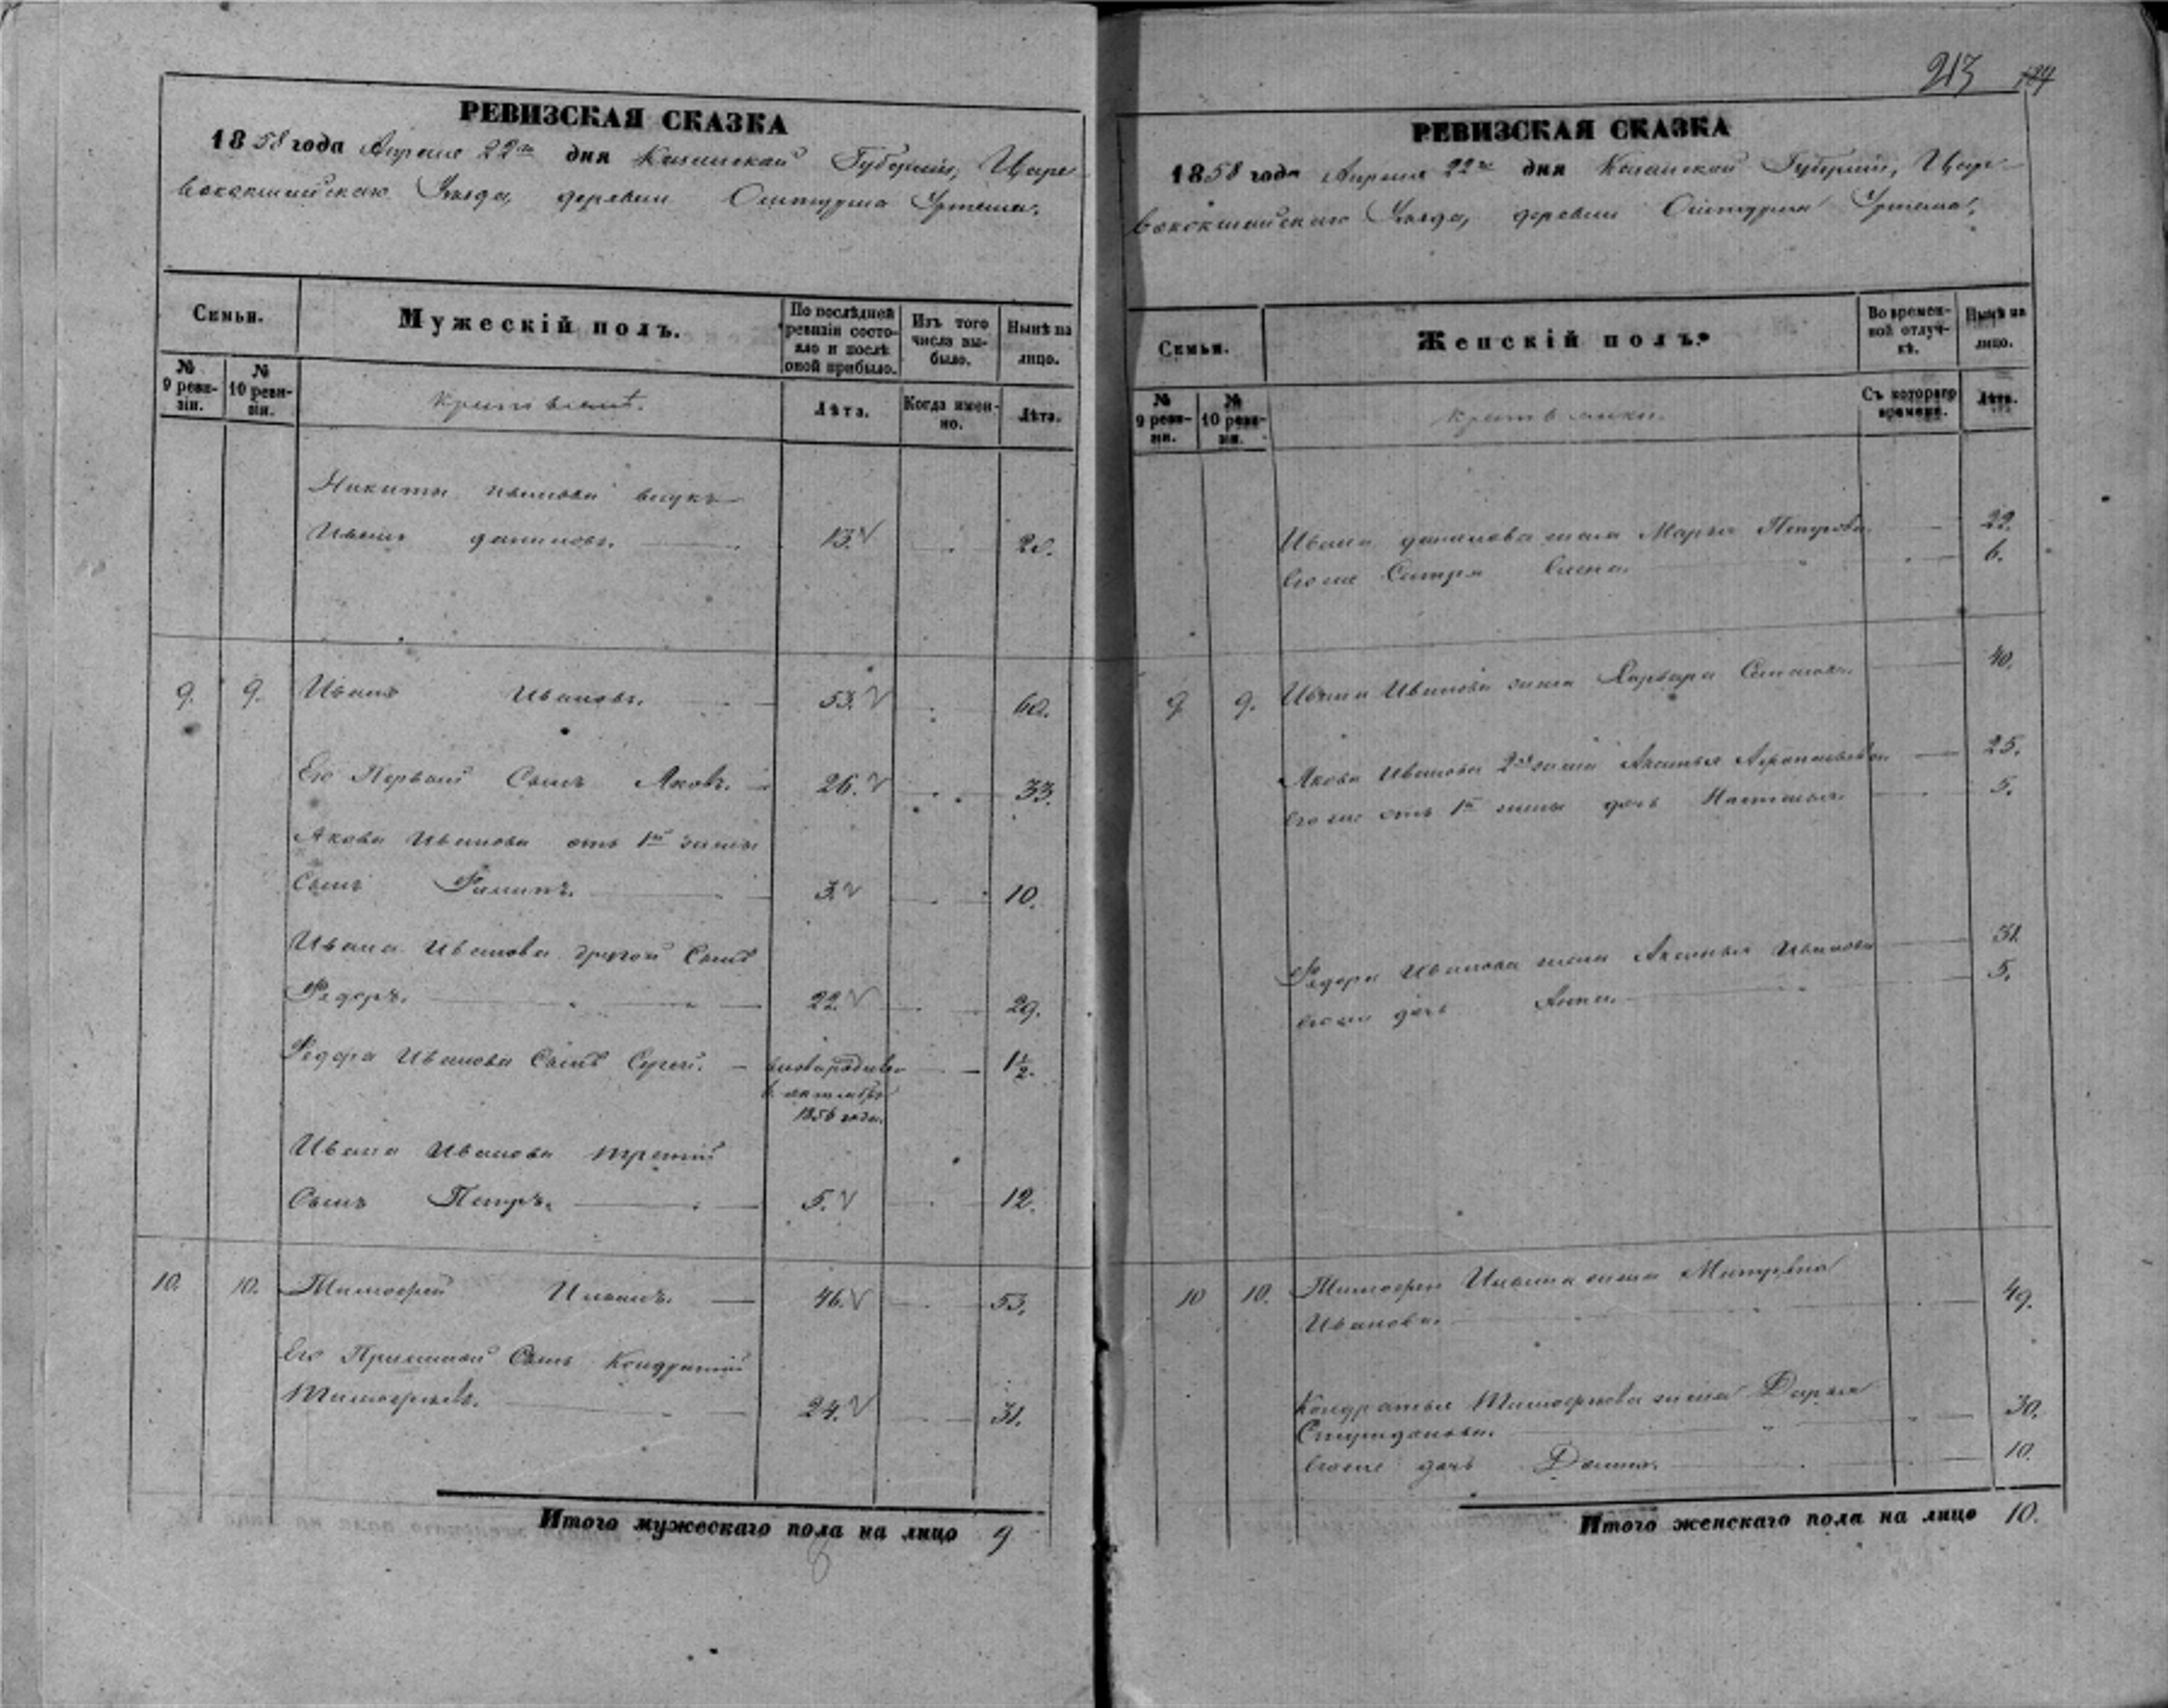 РЕВИЗСКАЯ СКАЗКА
1858 года Апреля 22го дня Казанской Губерніи, Царе
вококшайскаго Уѣзда, деревни Ошторма
Семьи.
Мужескій полъ.
По послѣдней ревизіи состояло и послѣ оной прибыло.
Изъ того числа выбыло.
Нынѣ на лицо.
№ 9 ревизіи.
№ 10 ревизіи.
Лѣта.
Когда именно.
Лѣта.
Никиты Иванова внукъ
Иванъ Даниловъ. 13.
9. 9. Иванъ Ивановъ. 53. 60.
Его Первый Сынъ Яковъ. 26. 33.
Якова Иванова отъ 1й жены
Сынъ Филипъ. 3. 10.
Ивана Иванова другой Сынъ
Федоръ. 22. 29.
Федора Иванова Сынъ Сергей. 1½.
1856 года.
Ивана Иванова третій
Сынъ Петръ. 5. 12.
10. 10. Тимофей Ильинъ. 46. 53.
Его Приемный Сынъ Кондратій
Тимофеевъ. 24. 31.
Итого мужескаго пола на лицо 9
213
РЕВИЗСКАЯ СКАЗКА
1858 года Апреля 22го дня Казанской Губерніи, Царе
вококшайскаго Уѣзда, деревни Ошторма
Семьи.
Женскій полъ.
Во временной отлучкѣ.
Нынѣ на лицо.
№ 9 ревизіи.
№ 10 ревизіи.
Съ котораго времени.
Лѣта.
Ивана Данилова жена Марья Петрова 22.
Его же Сестра 6.
9 9. Ивана Иванова жена Варвара 40.
Якова Иванова 2я жена 25.
Его же отъ 1й жены дочь Настасья 5.
Федора Иванова жена Иванова 31.
Его же дочь Анна. 5.
10 10. Тимофея Ильина жена
Иванова. 49.
Кондратья Тимофеева жена Дарья
30.
Его же дочь 10.
Итого женскаго пола на лицо 10.